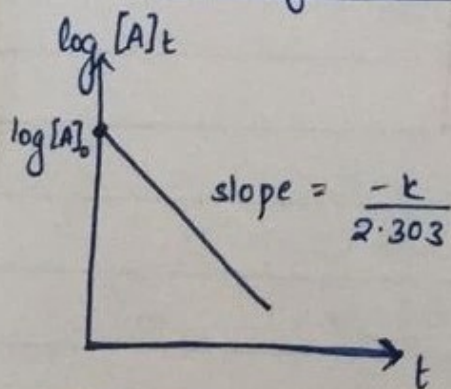 log [A]t
log[A]₀
slope = -k
2.303
t